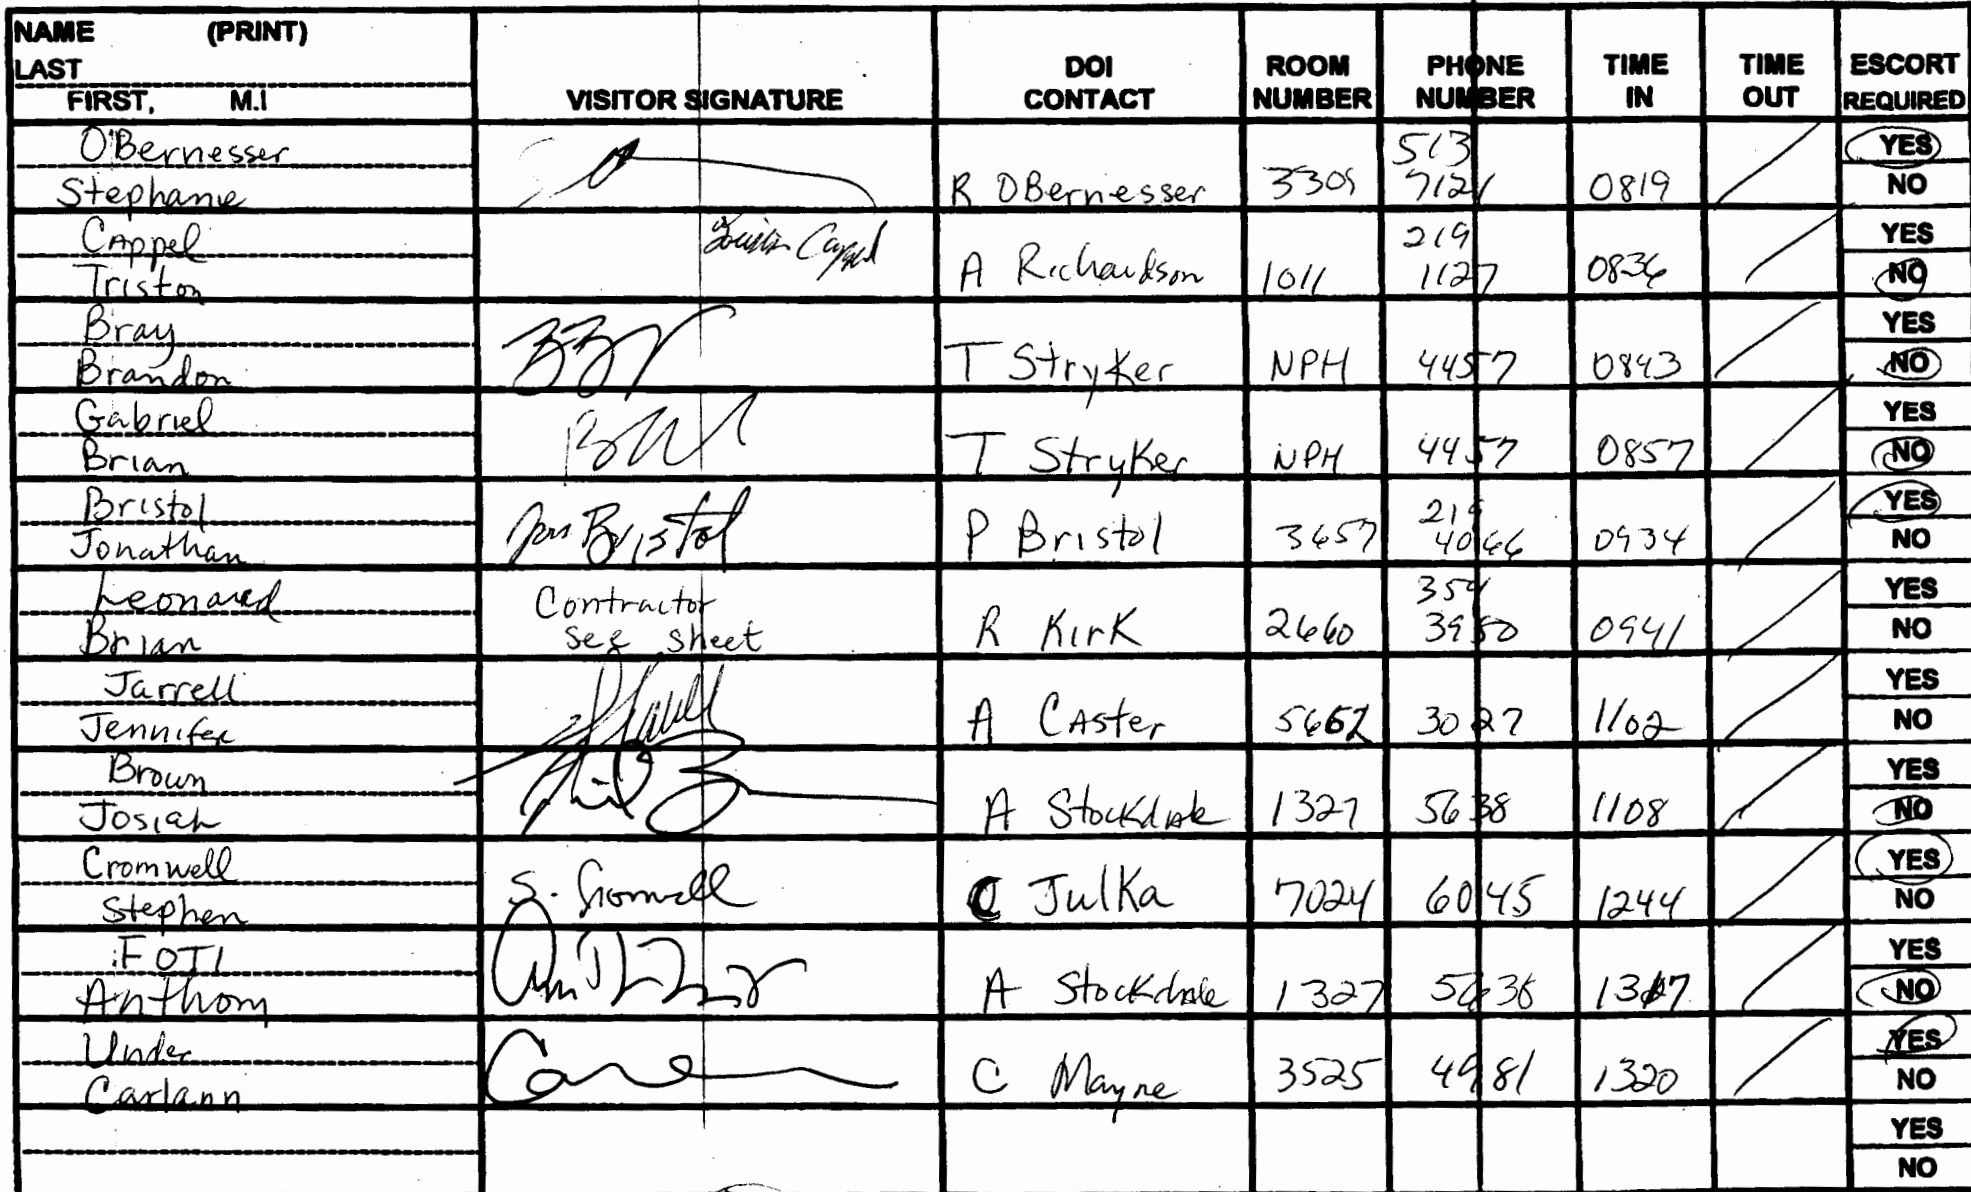 NAME (PRINT)
LAST
FIRST, M.I
VISITOR SIGNATURE
DOI
CONTACT
ROOM
NUMBER
PHONE
NUMBER
TIME
IN
TIME
OUT
ESCORT
REQUIRED
O'Bernesser
Stephanie
R OBernesser 3309 513
7121 0819 YES
NO
Cappel
Triston
A Richardson 1011 219
1127 0836 YES
NO
Bray
Brandon
T Stryker NPH 4457 0843 YES
NO
Gabriel
Brian
T Stryker NPH 4457 0857 YES
NO
Bristol
Jonathan
Jon Bristol
P Bristol 3657 219
4066 0934 YES
NO
Leonard
Brian
Contractor
see sheet
R Kirk 2660 354
3950 0941 YES
NO
Jarrell
Jennifer
A Caster 5662 3027 1102 YES
NO
Brown
Josiah
A Stockdale 1327 5638 1108 YES
NO
Cromwell
Stephen
S. Cromwell
C Julka 7024 6045 1244 YES
NO
FOTI
Anthony
A Stockdale 1327 5638 YES
NO
Under
Carlann
C Mayne 3525 4981 1320 YES
NO
YES
NO